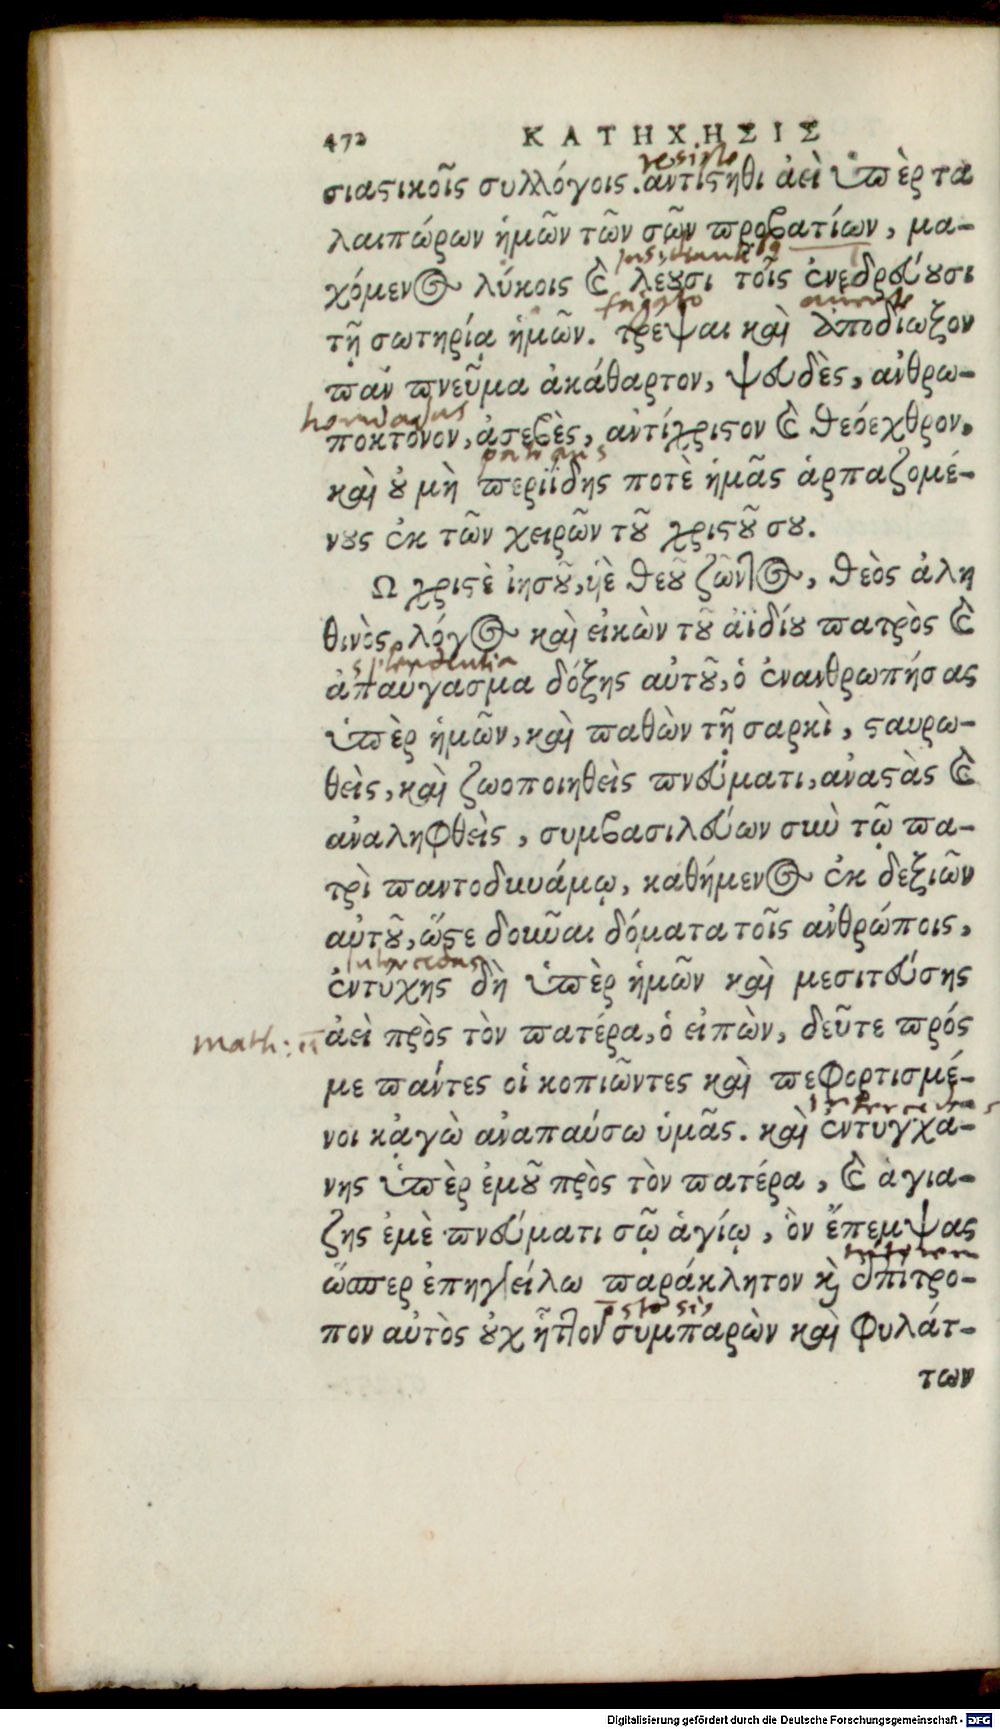 472 ΚΑΤΗΧΗΣΙΣ
resisto
σιαστικοῖς συλλόγοις. ἀντίστηθι ἀεὶ ὑπὲρ τα
λαιπώρων ἡμῶν τῶν σῶν προβατίων, μα-
χόμενος λύκοις καὶ λέουσι τοῖς ἐνεδρεύουσι
τῇ σωτηρίᾳ ἡμῶν. τρέψαι καὶ ἀποδίωξον
πᾶν πνεῦμα ἀκάθαρτον, ψευδὲς, ἀνθρω-
homicidas
ποκτόνον, ἀσεβὲς, ἀντίχριστον καὶ θεόεχθρον,
καὶ οὐ μὴ περιΐδῃς ποτὲ ἡμᾶς ἁρπαζομέ-
νους ἐκ τῶν χειρῶν τοῦ χριστοῦ σου.
Ω χριστὲ ἰησοῦ, ὑὲ θεοῦ ζῶντος, θεὸς ἀλη
θινὸς, λόγος καὶ εἰκὼν τοῦ ἀϊδίου πατρὸς καὶ
splendentia
ἀπαύγασμα δόξης αὐτοῦ, ὁ ἐνανθρωπήσας
ὑπὲρ ἡμῶν, καὶ παθὼν τῇ σαρκὶ, σταυρω-
θεὶς, καὶ ζωοποιηθεὶς πνεύματι, ἀναστὰς καὶ
ἀναληφθεὶς, συμβασιλεύων σὺν τῷ πα-
τρὶ παντοδυνάμῳ, καθήμενος ἐκ δεξιῶν
αὐτοῦ, ὥστε δοῦναι δόματα τοῖς ἀνθρώποις,
intercedas
ἐντύχῃς δὴ ὑπὲρ ἡμῶν καὶ μεσιτεύσῃς
math: 11 ἀεὶ πρὸς τὸν πατέρα, ὁ εἰπὼν, δεῦτε πρός
με πάντες οἱ κοπιῶντες καὶ πεφορτισμέ-
intercedas
νοι κἀγὼ ἀναπαύσω ὑμᾶς. καὶ ἐντυγχά-
νῃς ὑπὲρ ἐμοῦ πρὸς τὸν πατέρα, καὶ ἁγιά-
ζῃς ἐμὲ πνεύματι σῷ ἁγίῳ, ὃν ἔπεμψας
tutorem
ὥσπερ ἐπηγγείλω παράκλητον καὶ ἐπίτρο-
πον αὐτὸς οὐχ ἧττον συμπαρὼν καὶ φυλάτ-
των
Digitalisierung gefördert durch die Deutsche Forschungsgemeinschaft - DFG